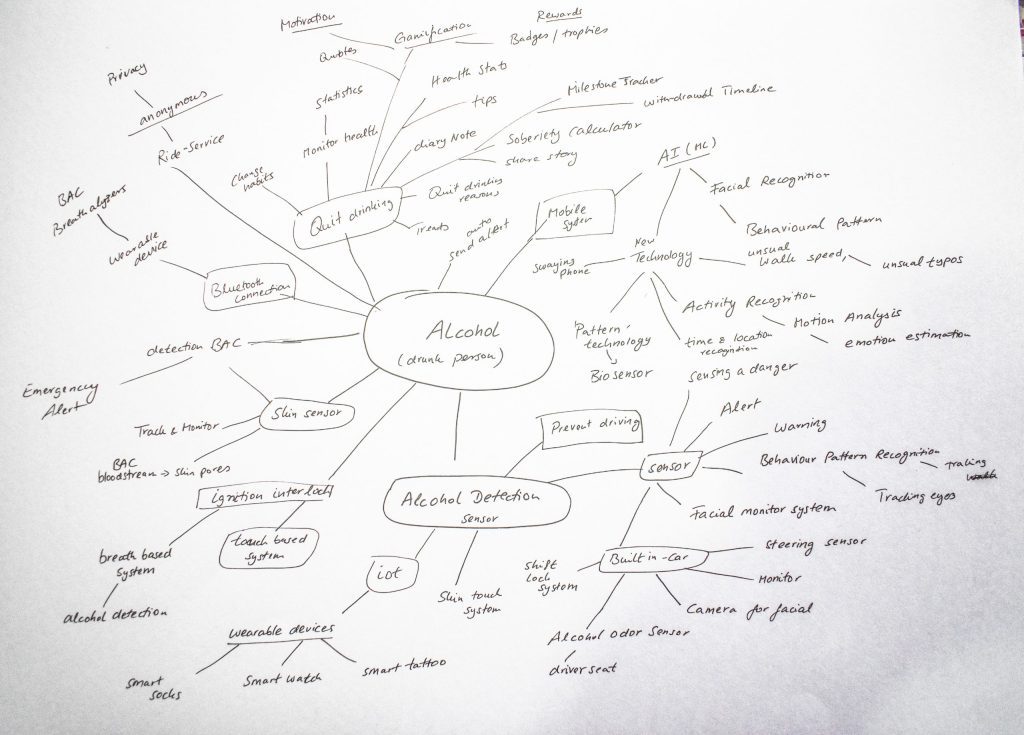 Motivation
Gamification
Rewards
Badges / trophies
Quotes
Privacy
anonymous
Ride-Service
Statistics
Monitor health
Health Stats
tips
diary Note
Milestone Tracker
withdrawal Timeline
Soberiety Calculator
share story
Change
habits
Quit drinking
Quit drinking
reasons
Trends
auto
send alert
Mobile
system
AI (ML)
Facial Recognition
Behavioural Pattern
unusual
walk speed,
unusual typos
New
Technology
swaying
phone
Activity Recognition
Motion Analysis
emotion estimation
time & location
recognition
Pattern-
technology
Bio sensor
BAC
Breathalyzers
wearable
device
Bluetooth
connection
Alcohol
(drunk person)
detection BAC
Emergency
Alert
Skin sensor
Track & Monitor
BAC
bloodstream → skin pores
ignition interlock
touch based
system
breath based
system
alcohol detection
Alcohol Detection
sensor
Prevent driving
sensing a danger
Alert
Warning
sensor
Behaviour Pattern Recognition
Tracking eyes
Facial monitor system
Built in-Car
Steering sensor
Monitor
Camera for facial
Alcohol odor sensor
driver seat
shift
lock
system
iot
Skin touch
system
wearable devices
smart
socks
Smart watch
smart tattoo